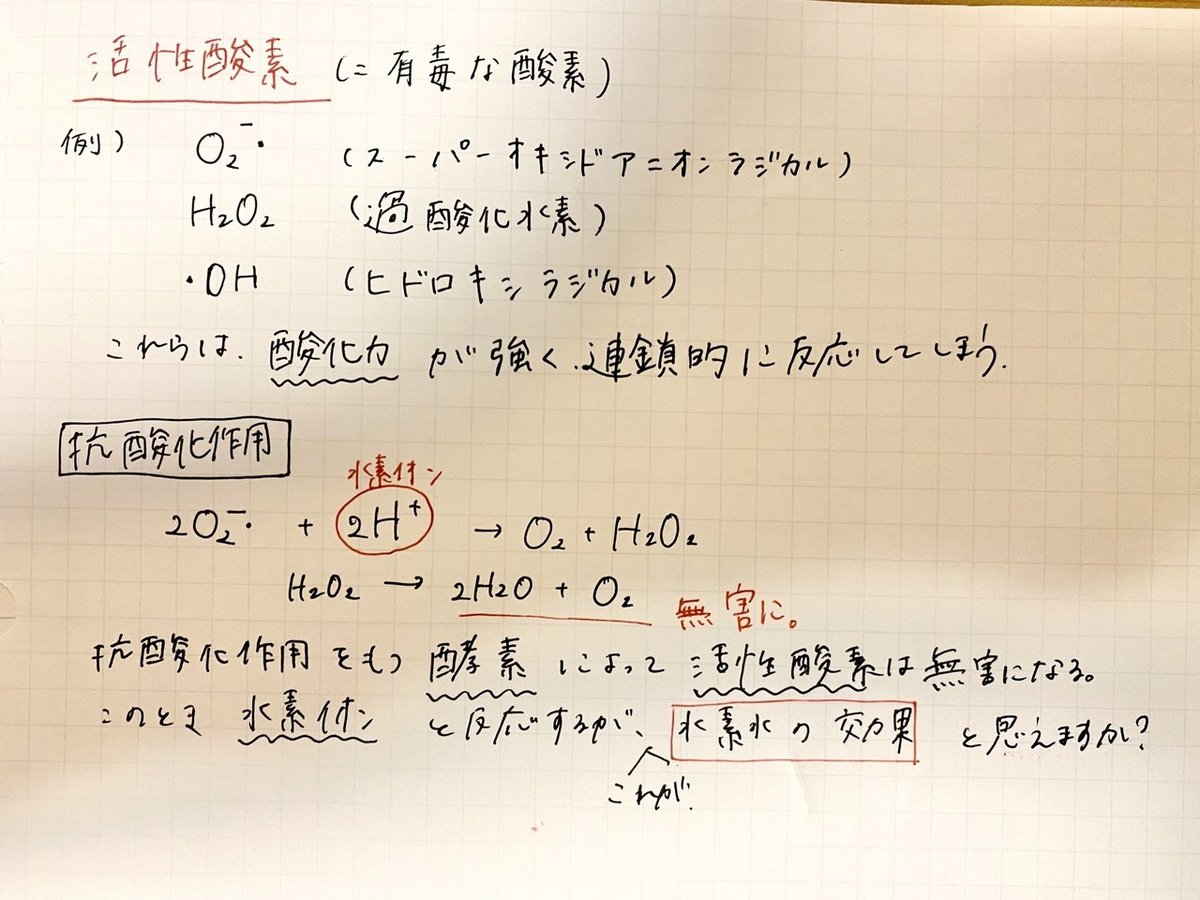 活性酸素 (=有毒な酸素)
例) O₂⁻・ (スーパーオキシドアニオンラジカル)
H₂O₂ (過酸化水素)
・OH (ヒドロキシラジカル)
これらは、酸化力が強く、連鎖的に反応してしまう。
抗酸化作用
水素イオン
2O₂⁻・ + 2H⁺ → O₂ + H₂O₂
H₂O₂ → 2H2O + O₂ 無害に。
抗酸化作用をもつ酵素によって活性酸素は無害になる。
このとき水素イオンと反応するが、水素水の効果と思えますか?
これが